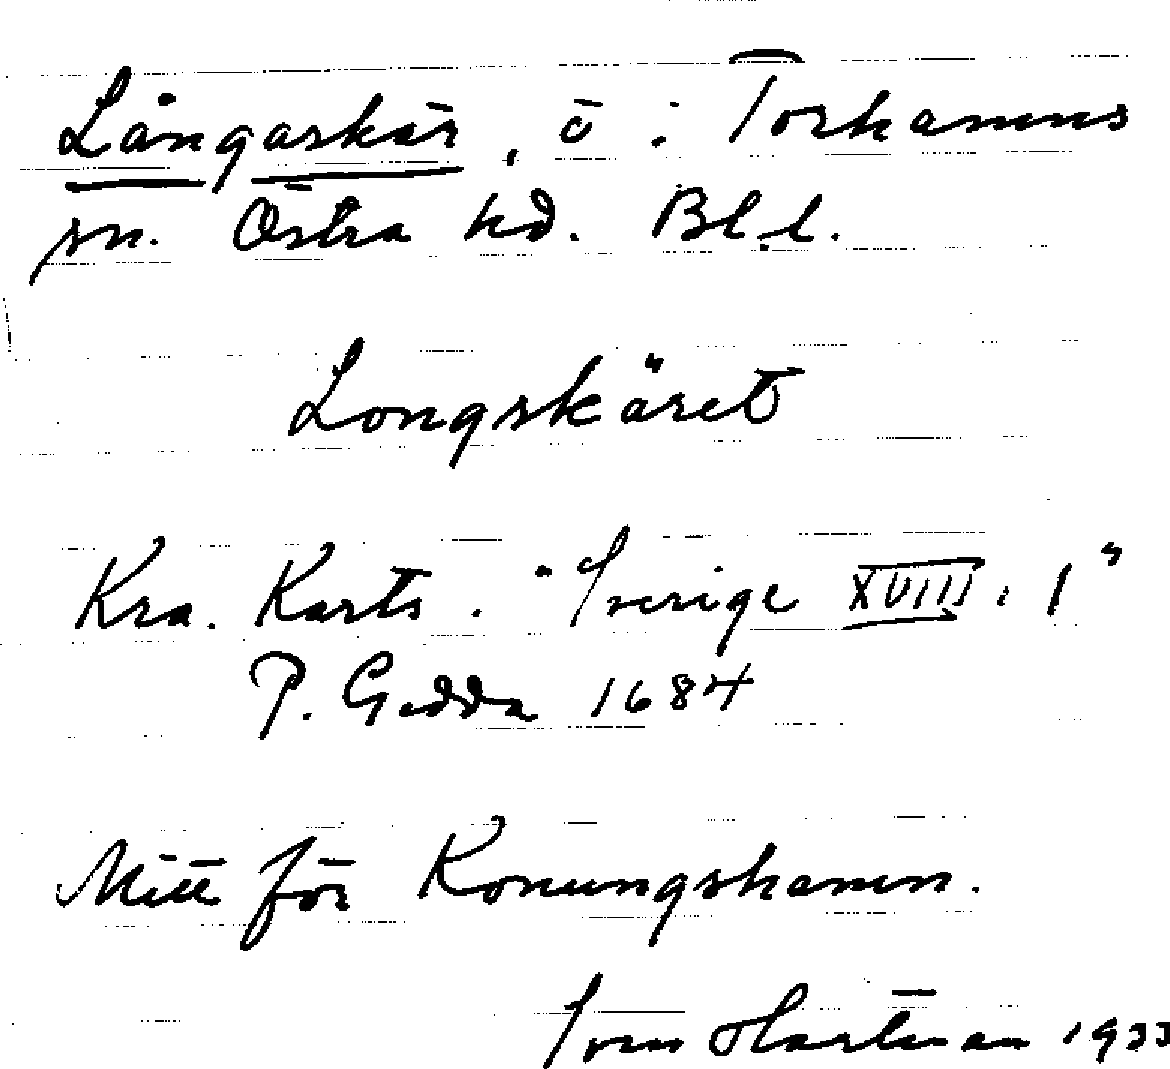 Långaskär, ö i Torhamns
sn. Östra hd. Bl.l.
Longskäret
Kra. Kartv. "Sverige XVIII. 1"
P. Gedda 1684
Mitt för Konungshamn.
Sven Hartman 1933